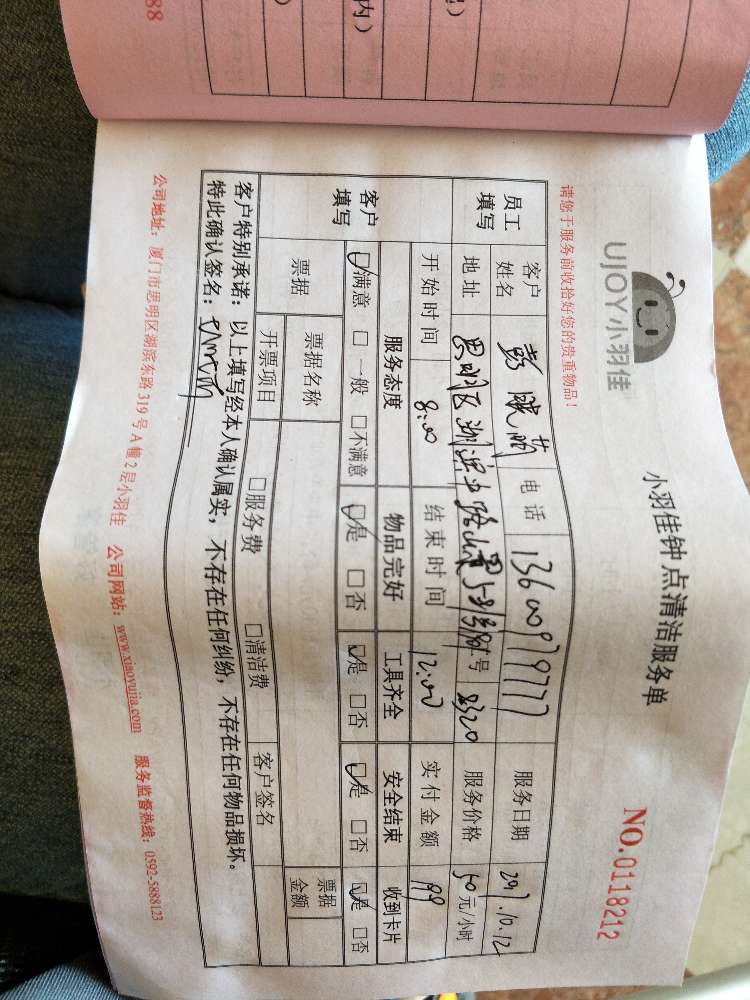 UJOY小羽佳
小羽佳钟点清洁服务单
NO.0118212
请您于服务前收拾好您的贵重物品！
员工填写
客户姓名 彭 电话 13600979777 服务日期 2017.10.12
地址 思明区湖滨中路 号 8320 服务价格 50元/小时
开始时间 8:00 结束时间 12:00 实付金额 199
客户填写
服务态度 物品完好 工具齐全 安全结束 收到卡片
☑满意 □一般 □不满意 ☑是 □否 ☑是 □否 ☑是 □否 ☑是 □否
票据 票据名称 票据金额
开票项目 □服务费 □清洁费 客户签名
客户特别承诺：以上填写经本人确认属实，不存在任何纠纷，不存在任何物品损坏。
特此确认签名：
公司地址：厦门市思明区湖滨东路319号A幢2层小羽佳 公司网站：www.xiaoyujia.com 服务监督热线：0592-5888123